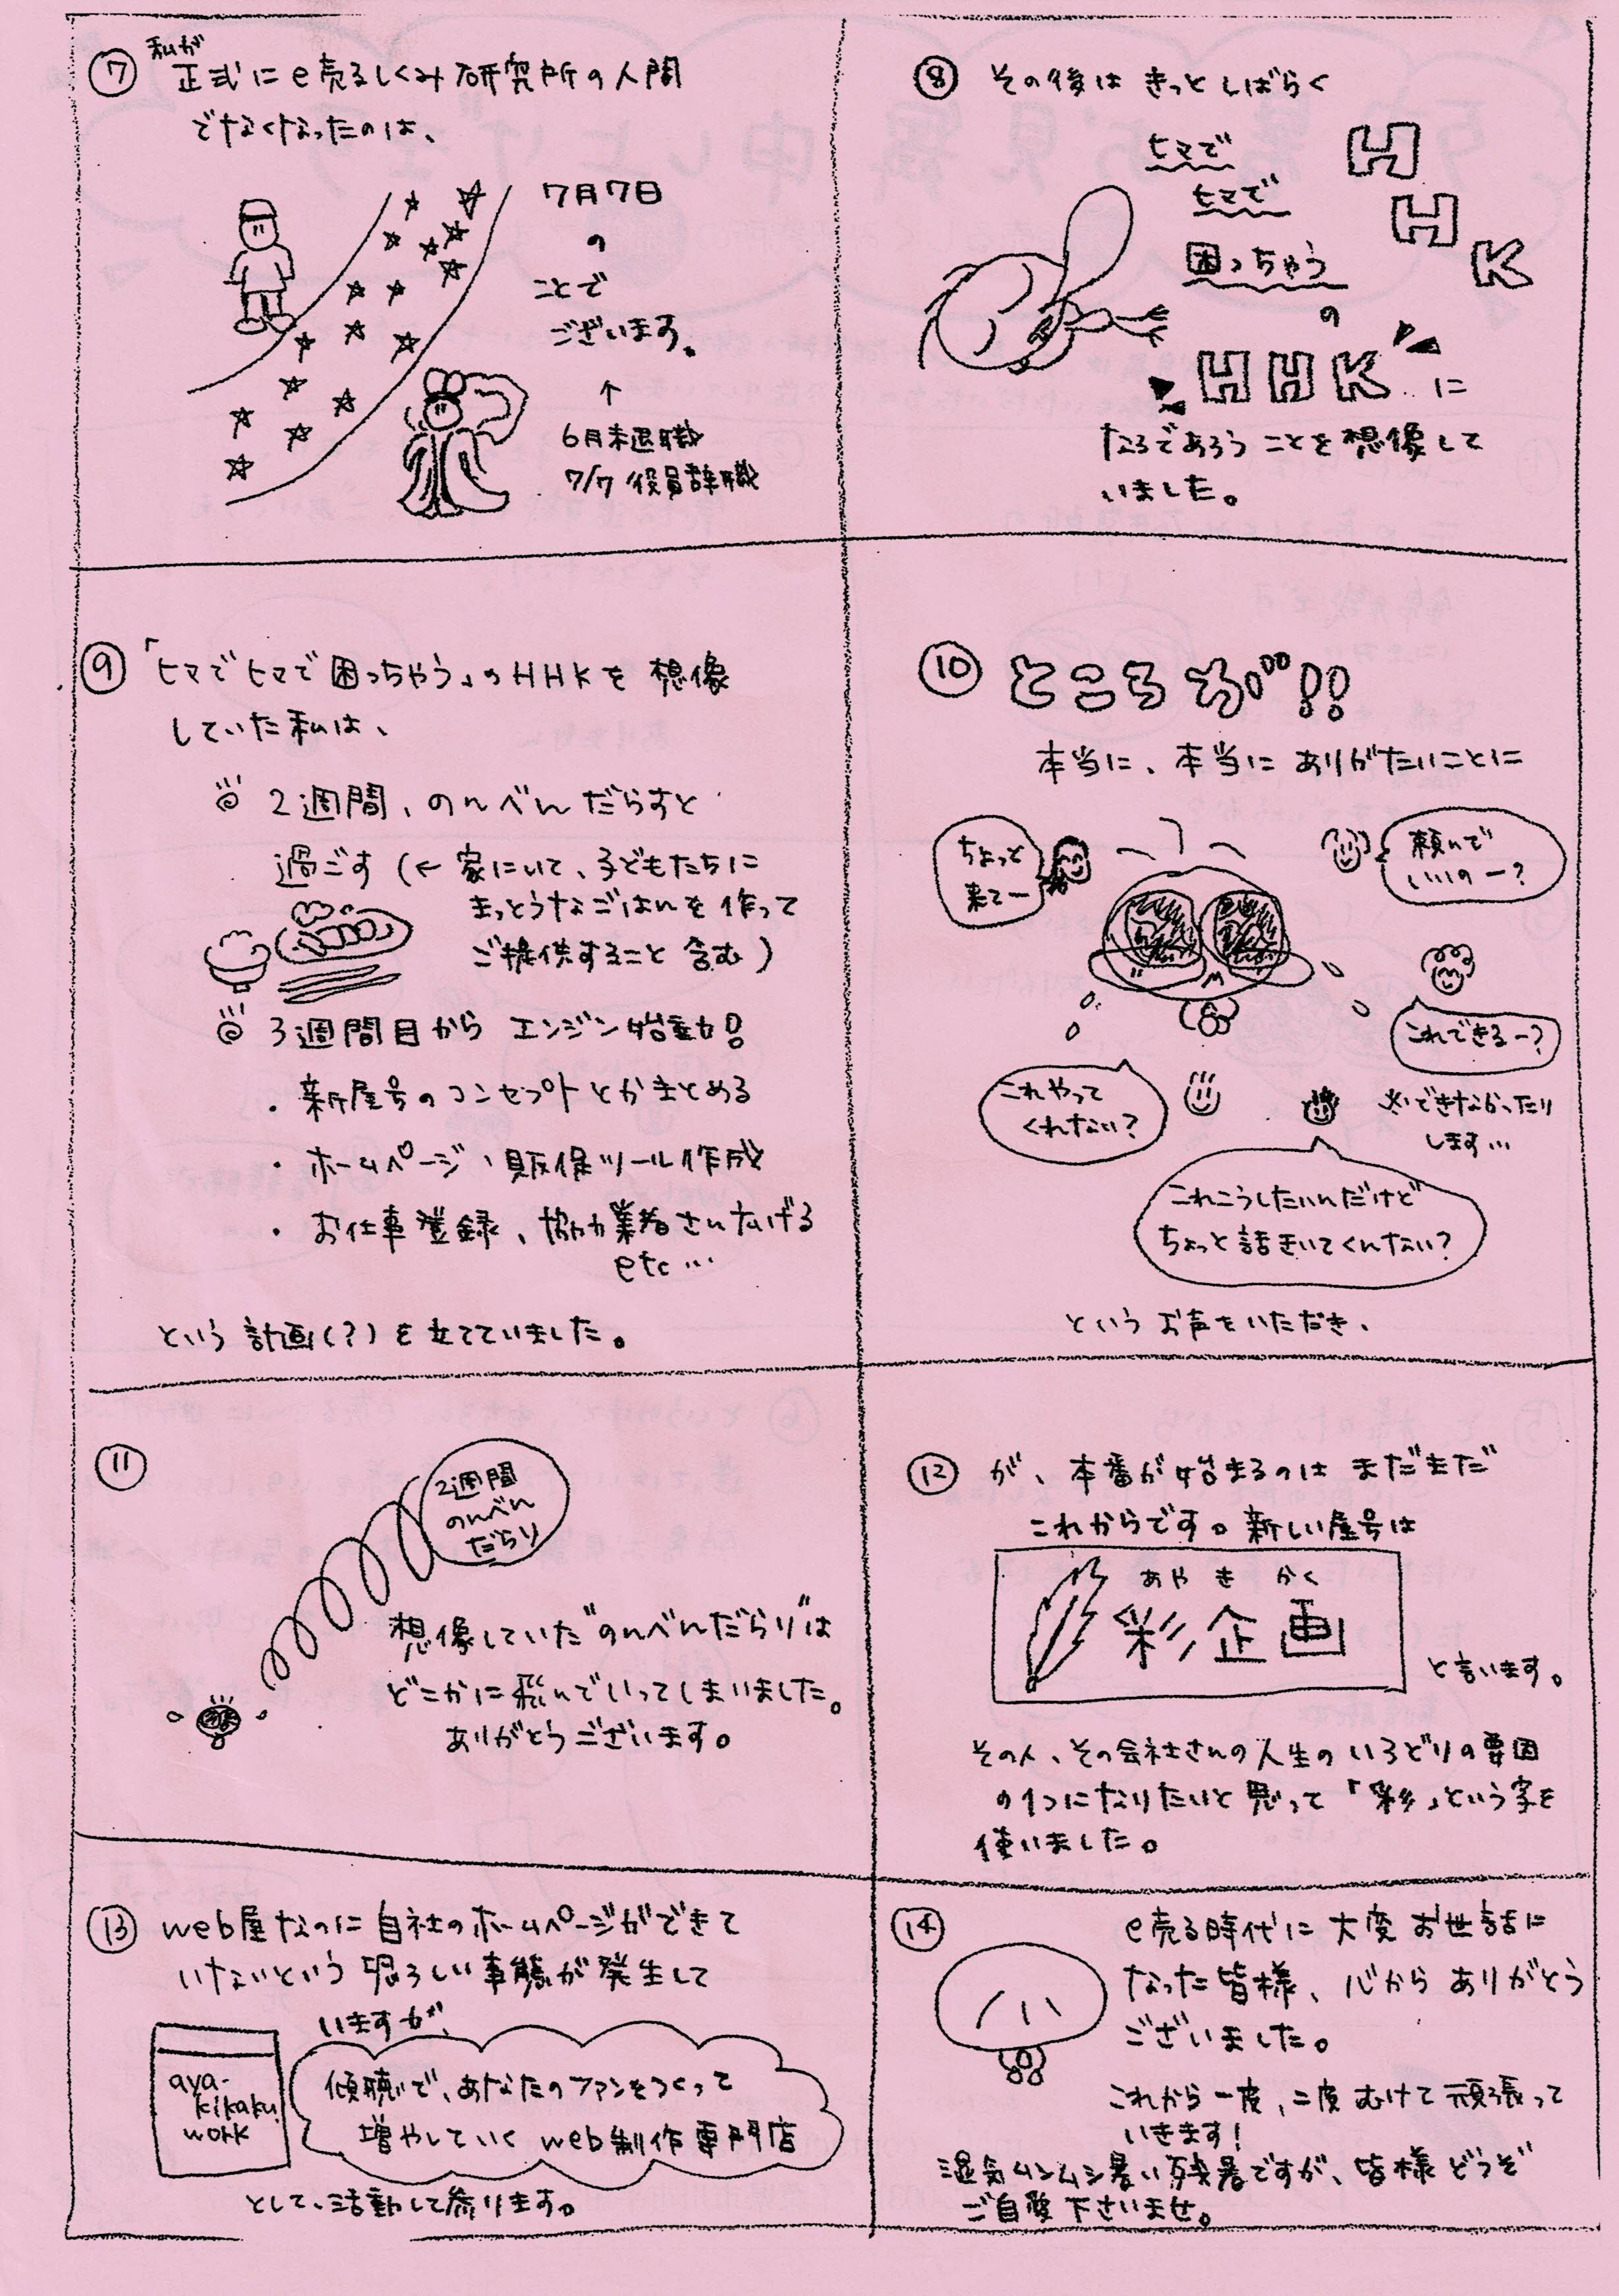 ⑦ 私が
正式にe売るしくみ研究所の人間
でなくなったのは、
7月7日
の
ことで
ございます。
↑
6月末退職
7/7 役員辞職
⑧ その後は きっと しばらく
ヒマで H
ヒマで H
困っちゃう K
の
HHK に
なるであろう ことを 想像して
いました。
⑨ 「ヒマで ヒマで 困っちゃう」の HHK を 想像
していた 私は、
2週間、のんべんだらりと
過ごす (← 家にいて、子どもたちに
まっとうなごはんを 作って
ご提供すること 含む)
3週間目から エンジン始動!
・新屋号の コンセプトとかまとめる
・ホームページ、販促ツール作成
・お仕事登録、協力業者さんひろげる
etc…
という 計画(?)を 立てていました。
⑩ ところが!!
本当に、本当に ありがたいことに
ちょっと
来てー
頼んで
いいのー?
これできるー?
※できなかったり
します…
これやって
くれない?
これこうしたいんだけど
ちょっと話きいてくんない?
という お声をいただき、
⑪
2週間
のんべん
だらり
想像していた"のんべんだらり"は
どこかに 飛んでいってしまいました。
ありがとうございます。
⑫ が、本番が始まるのは まだまだ
これからです。新しい屋号は
あや き かく
彩企画
と言います。
その人、その会社さんの人生の いろどりの要因
の1つになりたいと 思って 「彩」という字を
使いました。
⑬ web屋なのに 自社のホームページができて
いないという 恐ろしい事態が 発生して
いますが、
aya-
kikaku.
work
傾聴で、あなたのファンをつくって
増やしていく web制作専門店
として、活動して参ります。
⑭ e売る時代に 大変 お世話に
なった皆様、心から ありがとう
ございました。
これから 一度、二度 むけて 頑張って
いきます!
湿気ムンムン蒸し暑い残暑ですが、皆様 どうぞ
ご自愛 下さいませ。